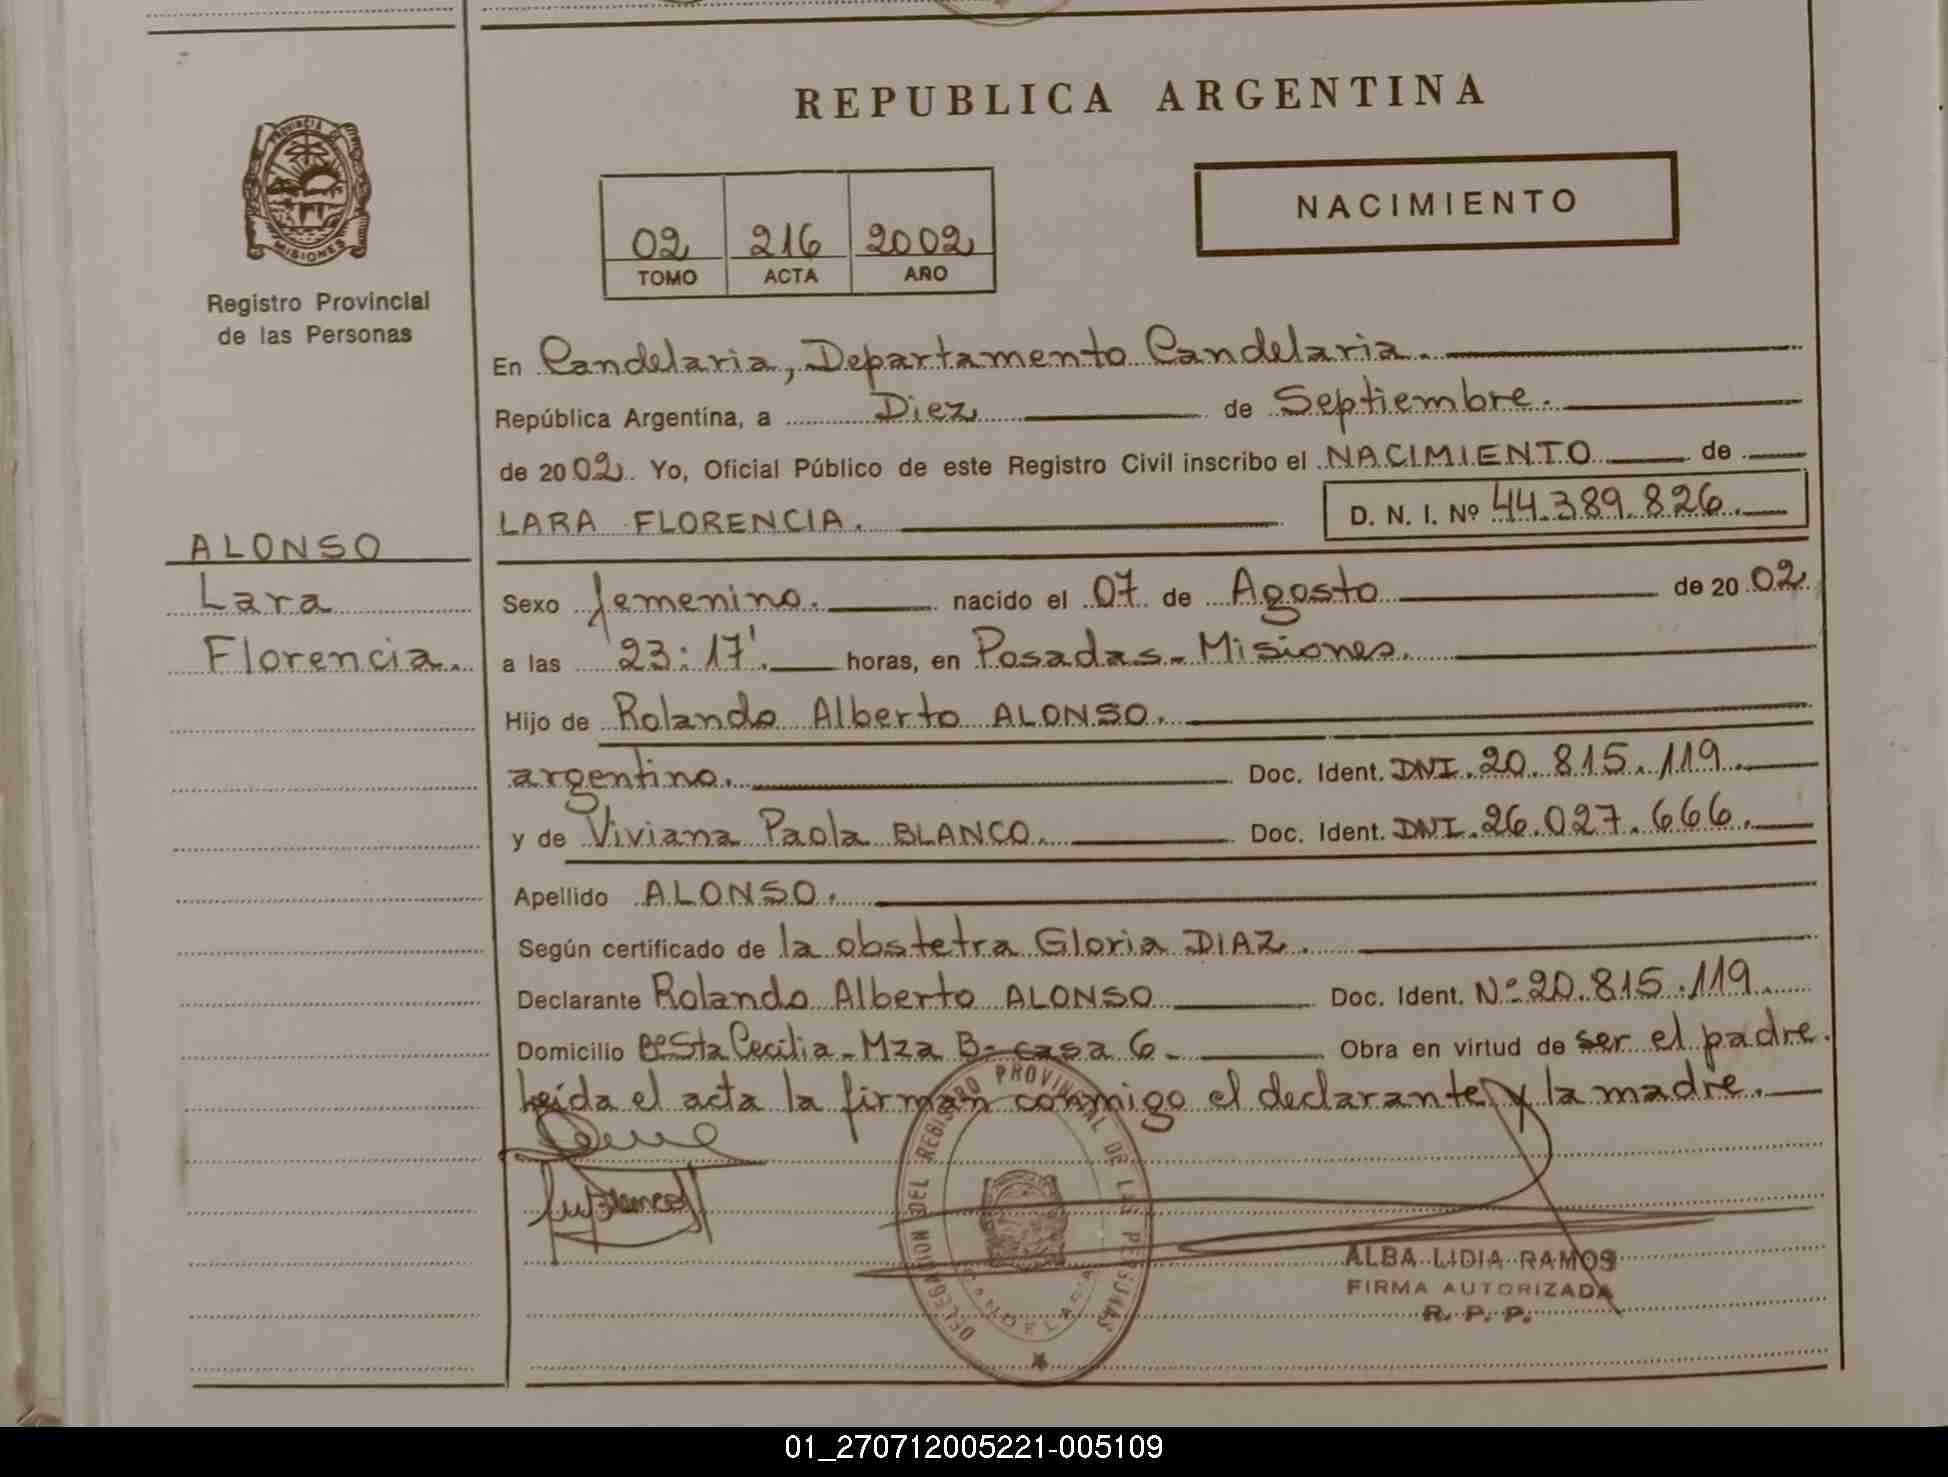 REPUBLICA ARGENTINA
PROVINCIA DE MISIONES
Registro Provincial
de las Personas
02 216 2002
TOMO ACTA AÑO
NACIMIENTO
En Candelaria, Departamento Candelaria.
República Argentina, a Diez de Septiembre.
de 2002. Yo, Oficial Público de este Registro Civil inscribo el NACIMIENTO de
LARA FLORENCIA. D. N. I. Nº 44.389.826.
ALONSO
Lara
Florencia.
Sexo femenino. nacido el 07 de Agosto de 2002.
a las 23:17'. horas, en Posadas - Misiones.
Hijo de Rolando Alberto ALONSO.
argentino. Doc. Ident. DNI. 20.815.119.
y de Viviana Paola BLANCO. Doc. Ident. DNI. 26.027.666.
Apellido ALONSO.
Según certificado de la obstetra Gloria DIAZ.
Declarante Rolando Alberto ALONSO Doc. Ident. Nº 20.815.119.
Domicilio Bº Sta Cecilia - Mza B - casa 6 - Obra en virtud de ser el padre.
Leída el acta la firman conmigo el declarante y la madre.
DELEGACION DEL REGISTRO PROVINCIAL DE LAS PERSONAS
ALBA LIDIA RAMOS
FIRMA AUTORIZADA
R. P. P.
01_270712005221-005109